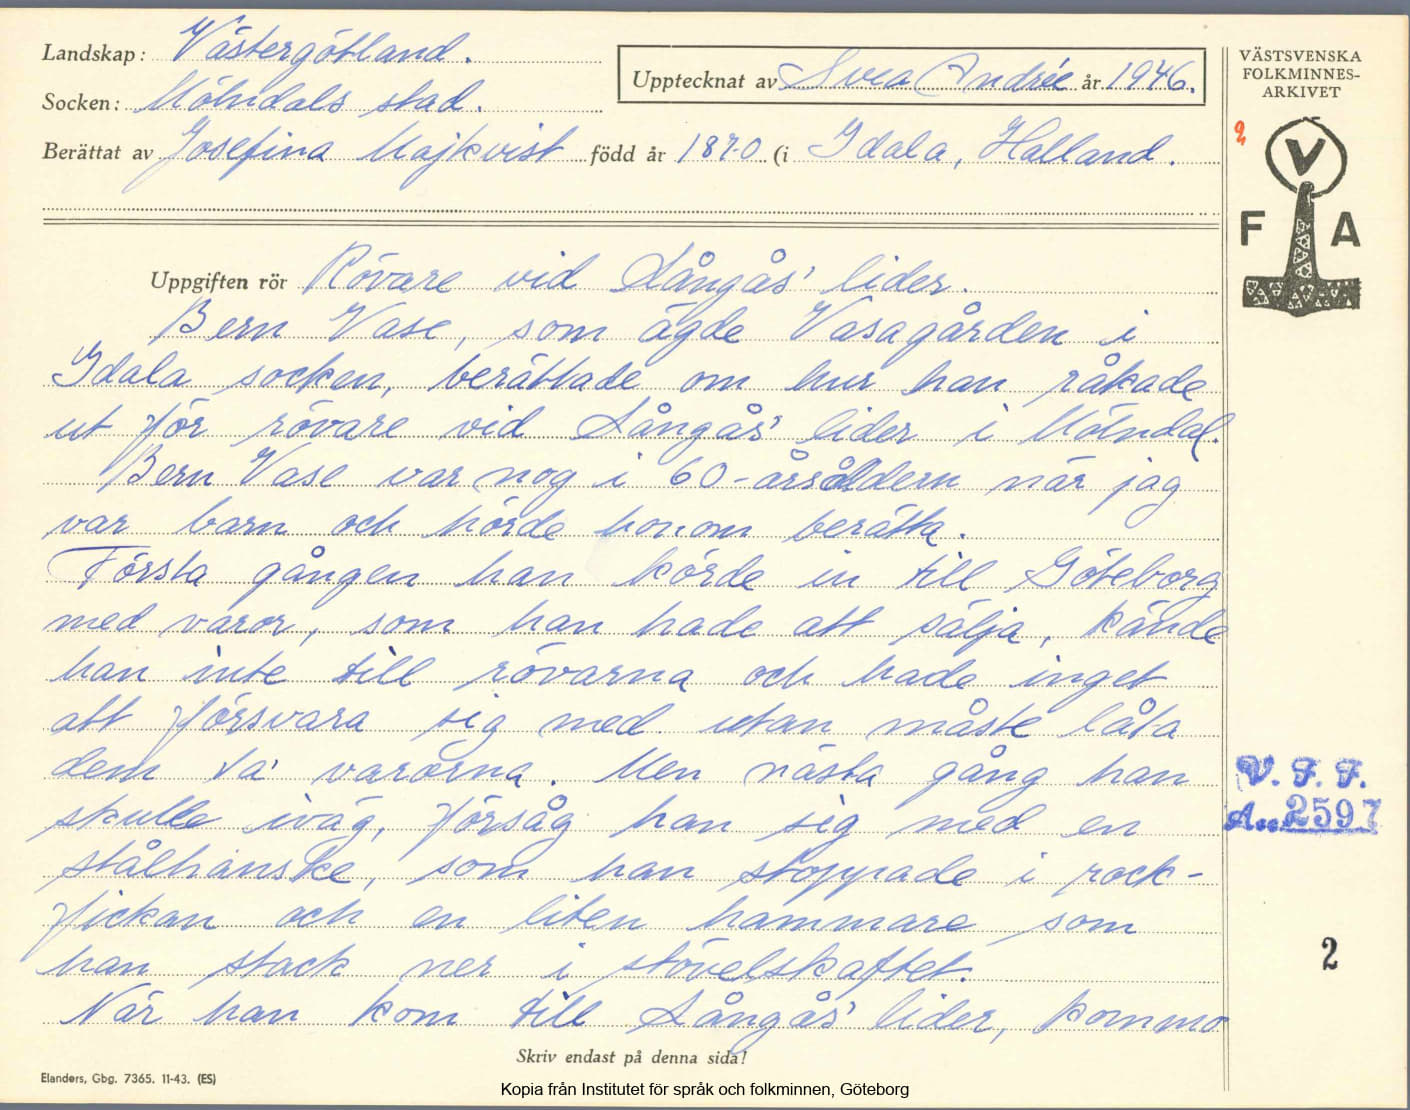 Landskap: Västergötland.
Socken: Mölndals stad.
Upptecknat av Svea Andrée år 1946.
Berättat av Josefina Majkvist född år 1870 (i Idala, Halland.
VÄSTSVENSKA
FOLKMINNES-
ARKIVET
2
V
F A
Uppgiften rör Rövare vid Långås' lider.
Bern Vase, som ägde Vasagården i
Idala socken, berättade om hur han råkade
ut för rövare vid Långås' lider i Mölndal.
Bern Vase var nog i 60-årsåldern när jag
var barn och hörde honom berätta.
Första gången han körde in till Göteborg
med varor, som han hade att sälja, kände
han inte till rövarna och hade inget
att försvara sig med utan måste låta
dem ta' varorna. Men nästa gång han
skulle iväg, försåg han sig med en
stålhanske, som han stoppade i rock-
fickan och en liten hammare som
han stack ner i stövelskaftet.
När han kom till Långås' lider, kommo
V. F. F.
Acc. 2597
2
Skriv endast på denna sida!
Elanders, Gbg. 7365. 11-43. (ES)
Kopia från Institutet för språk och folkminnen, Göteborg